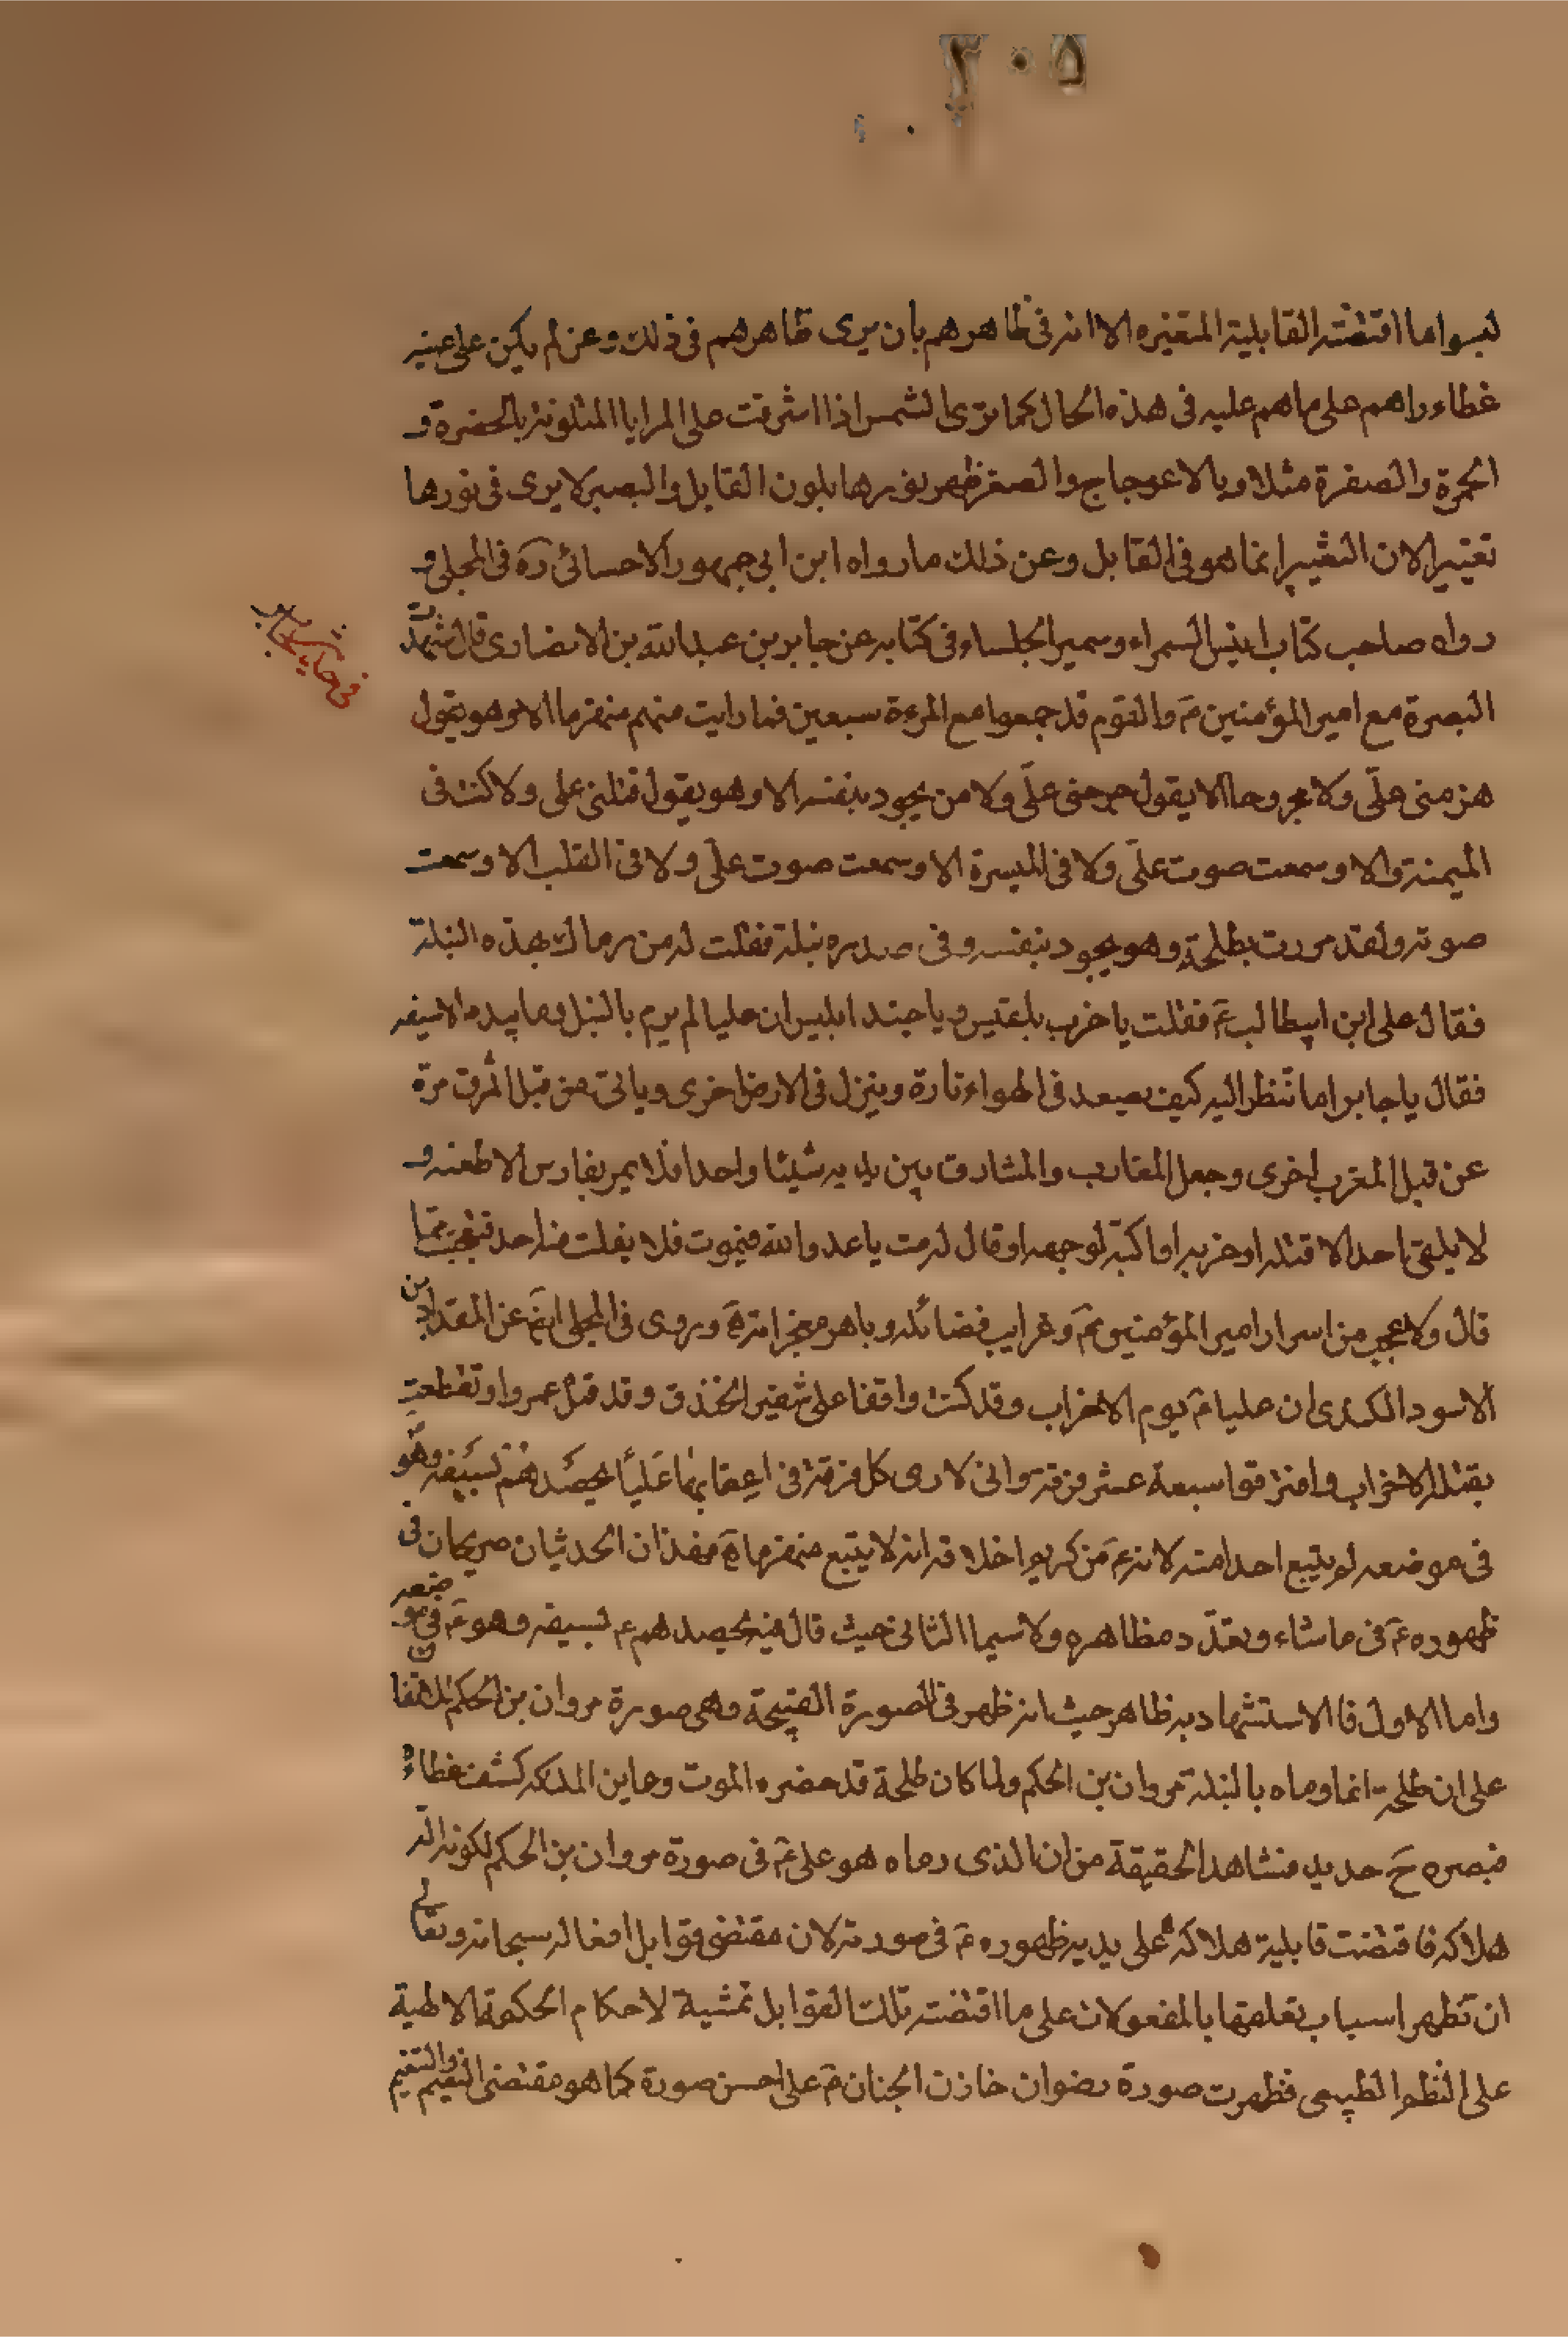 ٣٠٥
لبسوا ما اقتضته القابلية المتغيره الا انه فى ظاهرهم بان يرى ظاهرهم فى ذلك وعن لم يكن على عينيه
غطاء راهم على ماهم عليه فى هذه الحال كما ترى الشمس اذا اشرقت على المرايا المتلونة بالخضرة و
الحمرة والصفرة مثلا وبالاعوجاج والصغر ظهر نورها بلون القابل والبصير لا يرى فى نورها
تغييرا لان التغيير انما هو فى القابل وعن ذلك ما رواه ابن ابى جمهور الاحسائى ره فى المجلى و
رواه صاحب كتاب انيس السمراء وسمير الجلساء فى كتابه عن جابر بن عبد الله بن الانصارى قال شهدت
البصرة مع امير المؤمنين ع والقوم قد جمعوا مع المرءة سبعين فما رايت منهم منهزما الا وهو يقول
هزمنى علّى ولا مجروحا الا يقول جرحنى علّى ولا من يجود بنفسه الا وهو يقول قتلنى على ولا كنت فى
الميمنة الا وسمعت صوت علّى ولا فى الميسرة الا وسمعت صوت علّى ولا فى القلب الا وسمعت
صوته ولقد مررت بطلحة وهو يجود بنفسه وفى صدره نبلة فقلت له من رماك بهذه النبلة
فقال على ابن ابيطالب ع فقلت يا حزب بلقيس ويا جند ابليس ان عليا لم يرم بالنبل وما بيده الا سيفه
فقال يا جابر اما تنظر اليه كيف يصعد فى الهواء تارة وينزل فى الارض اخرى وياتى من قبل المشرق مرة
عن قبل المغرب اخرى وجعل المغارب والمشارق بين يديه شيئا واحدا فلا يمر بفارس الا طعنه و
لا يلقى احدا الا قتله او ضربه او اكبه لوجهه او قال له مت يا عدو الله فيموت فلا يفلت منه احد فتعجبت مما
قال ولا عجب من اسرار امير المؤمنين ع وغرايب فضائله وباهر معجزاته ع وروى فى المجلى ايضا عن المقداد بن
الاسود الكندى ان عليا ع يوم الاحزاب وقد كنت واقفا على شفير الخندق وقد قتل عمروا وتقطعت
بقتله الاحزاب وافترقوا سبعة عشر فرقة وانى لارى كل فرقة فى اعقابها عليا يحصدهم بسيفه وهو
فى موضعه لم يتبع احدا منهم لانه ع من كريم اخلاقه انه لا يتبع منهزما ع فهذان الحديثان صريحان فى
ظهوره ع فى ما شاء وتعدّد مظاهره ولا سيما الثانى حيث قال فيه يحصدهم ع بسيفه وهو ع فى موضعه
واما الاول فالاستشهاد به ظاهر حيث انه ظهر فى الصورة القبيحة وهى صورة مروان بن الحكم للاتفاق
على ان طلحة انما رماه بالنبلة مروان بن الحكم ولما كان طلحة قد حضره الموت وعاين الملائكة كشف غطاءه
فبصره ح حديد فشاهد الحقيقة من ان الذى رماه هو على ع فى صورة مروان بن الحكم لكونه الة
هلاكه فاقتضت قابلية هلاكه على يديه ظهوره ع فى صورته لان مقتضى قوابل افعاله سبحانه وتعالى
ان تظهر اسباب تعلقها بالمفعولات على ما اقتضته تلك القوابل تمشية لاحكام الحكمة الالهية
على النظم الطبيعى فظهرت صورة رضوان خازن الجنان ع على احسن صورة كما هو مقتضى النعيم والتنعيم